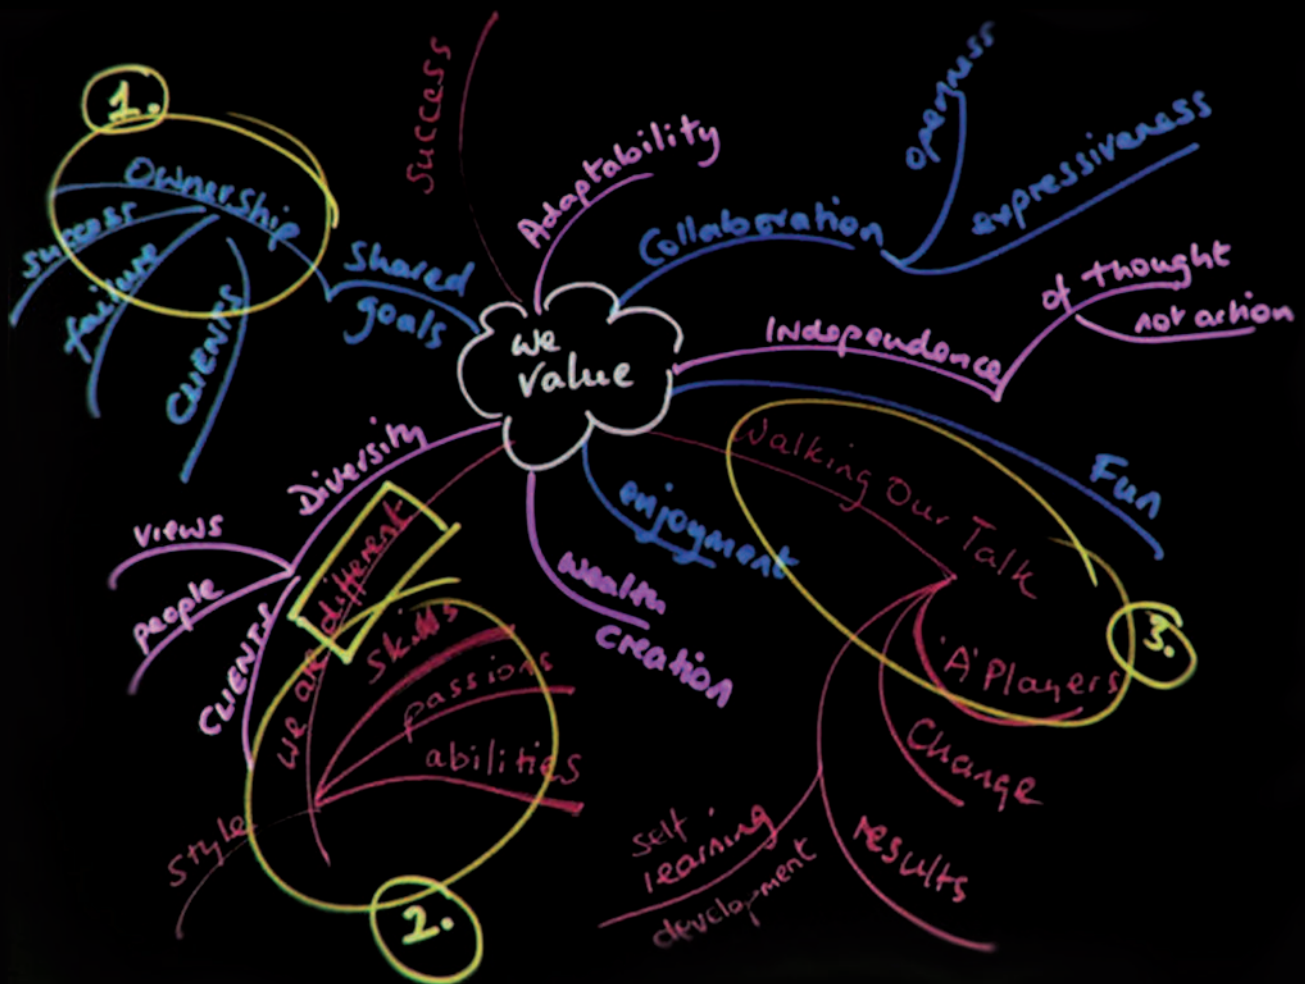 1.
Ownership
success
failure
CLIENTS
Shared
goals
Success
Adaptability
Collaboration
openness
expressiveness
Independence
of thought
not action
we
value
Fun
Walking Our Talk
'A' Players
3.
Change
results
self
learning
development
enjoyment
Wealth
creation
Diversity
views
people
CLIENTS
we are different
skills
passions
abilities
style
2.